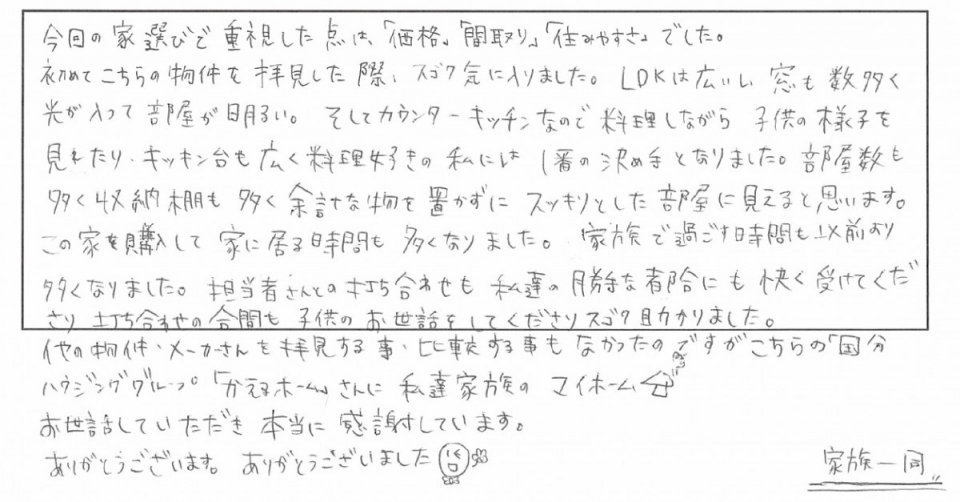 今回の家選びで重視した点は、「価格」「間取り」「住みやすさ」でした。
初めてこちらの物件を拝見した際、スゴク気に入りました。LDKは広いし窓も数多く
光が入って部屋が明るい。そしてカウンターキッチンなので料理しながら子供の様子を
見れたり・キッキン台も広く料理好きの私には1番の決め手となりました。部屋数も
多く収納棚も多く余計な物を置かずにスッキリとした部屋に見えると思います。
この家を購入して家に居る時間も多くなりました。家族で過ごす時間も以前より
多くなりました。担当者さんとの打ち合わせも私達の勝手な都合にも快く受けてくだ
さり打ち合わせの合間も子供のお世話をしてくださりスゴク助かりました。
他の物件・メーカーさんを拝見する事・比較する事もなかったのですがこちらの「国分
ハウジンググループ「かえるホーム」さんに私達家族のマイホーム
お世話していただき本当に感謝しています。
ありがとうございます。ありがとうございました
家族一同